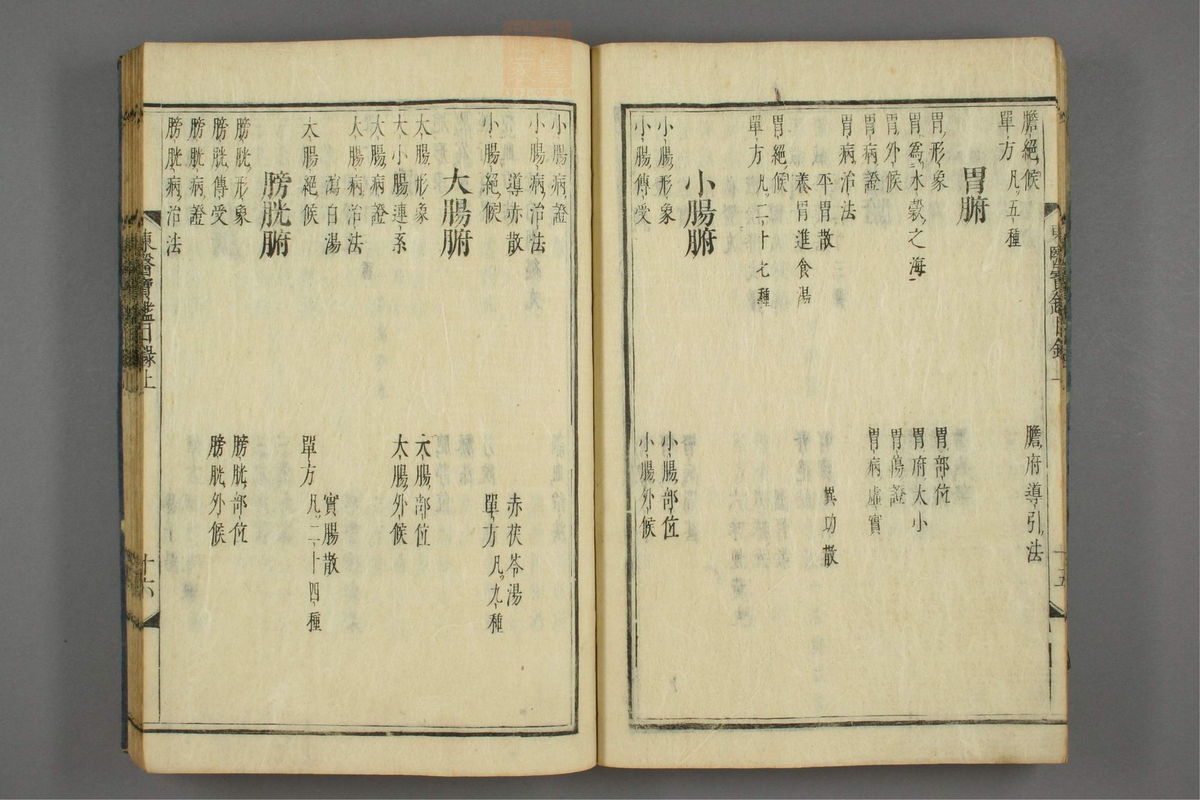 膽絕候
膽府導引法
單方凡五種
胃腑
胃形象
胃部位
胃爲水穀之海
胃府大小
胃外候
胃傷證
胃病證
胃病虛實
胃病治法
平胃散
異功散
養胃進食湯
胃絕候
單方凡二十七種
小腸腑
小腸形象
小腸部位
小腸傳受
小腸外候
小腸病證
小腸病治法
導赤散
赤茯苓湯
小腸絕候
單方凡九種
大腸腑
大腸形象
大腸部位
大小腸連系
大腸外候
大腸病證
大腸病治法
瀉白湯
實腸散
大腸絕候
單方凡二十四種
膀胱腑
膀胱形象
膀胱部位
膀胱傳受
膀胱外候
膀胱病證
膀胱病治法
東醫寶鑑目錄上
十六